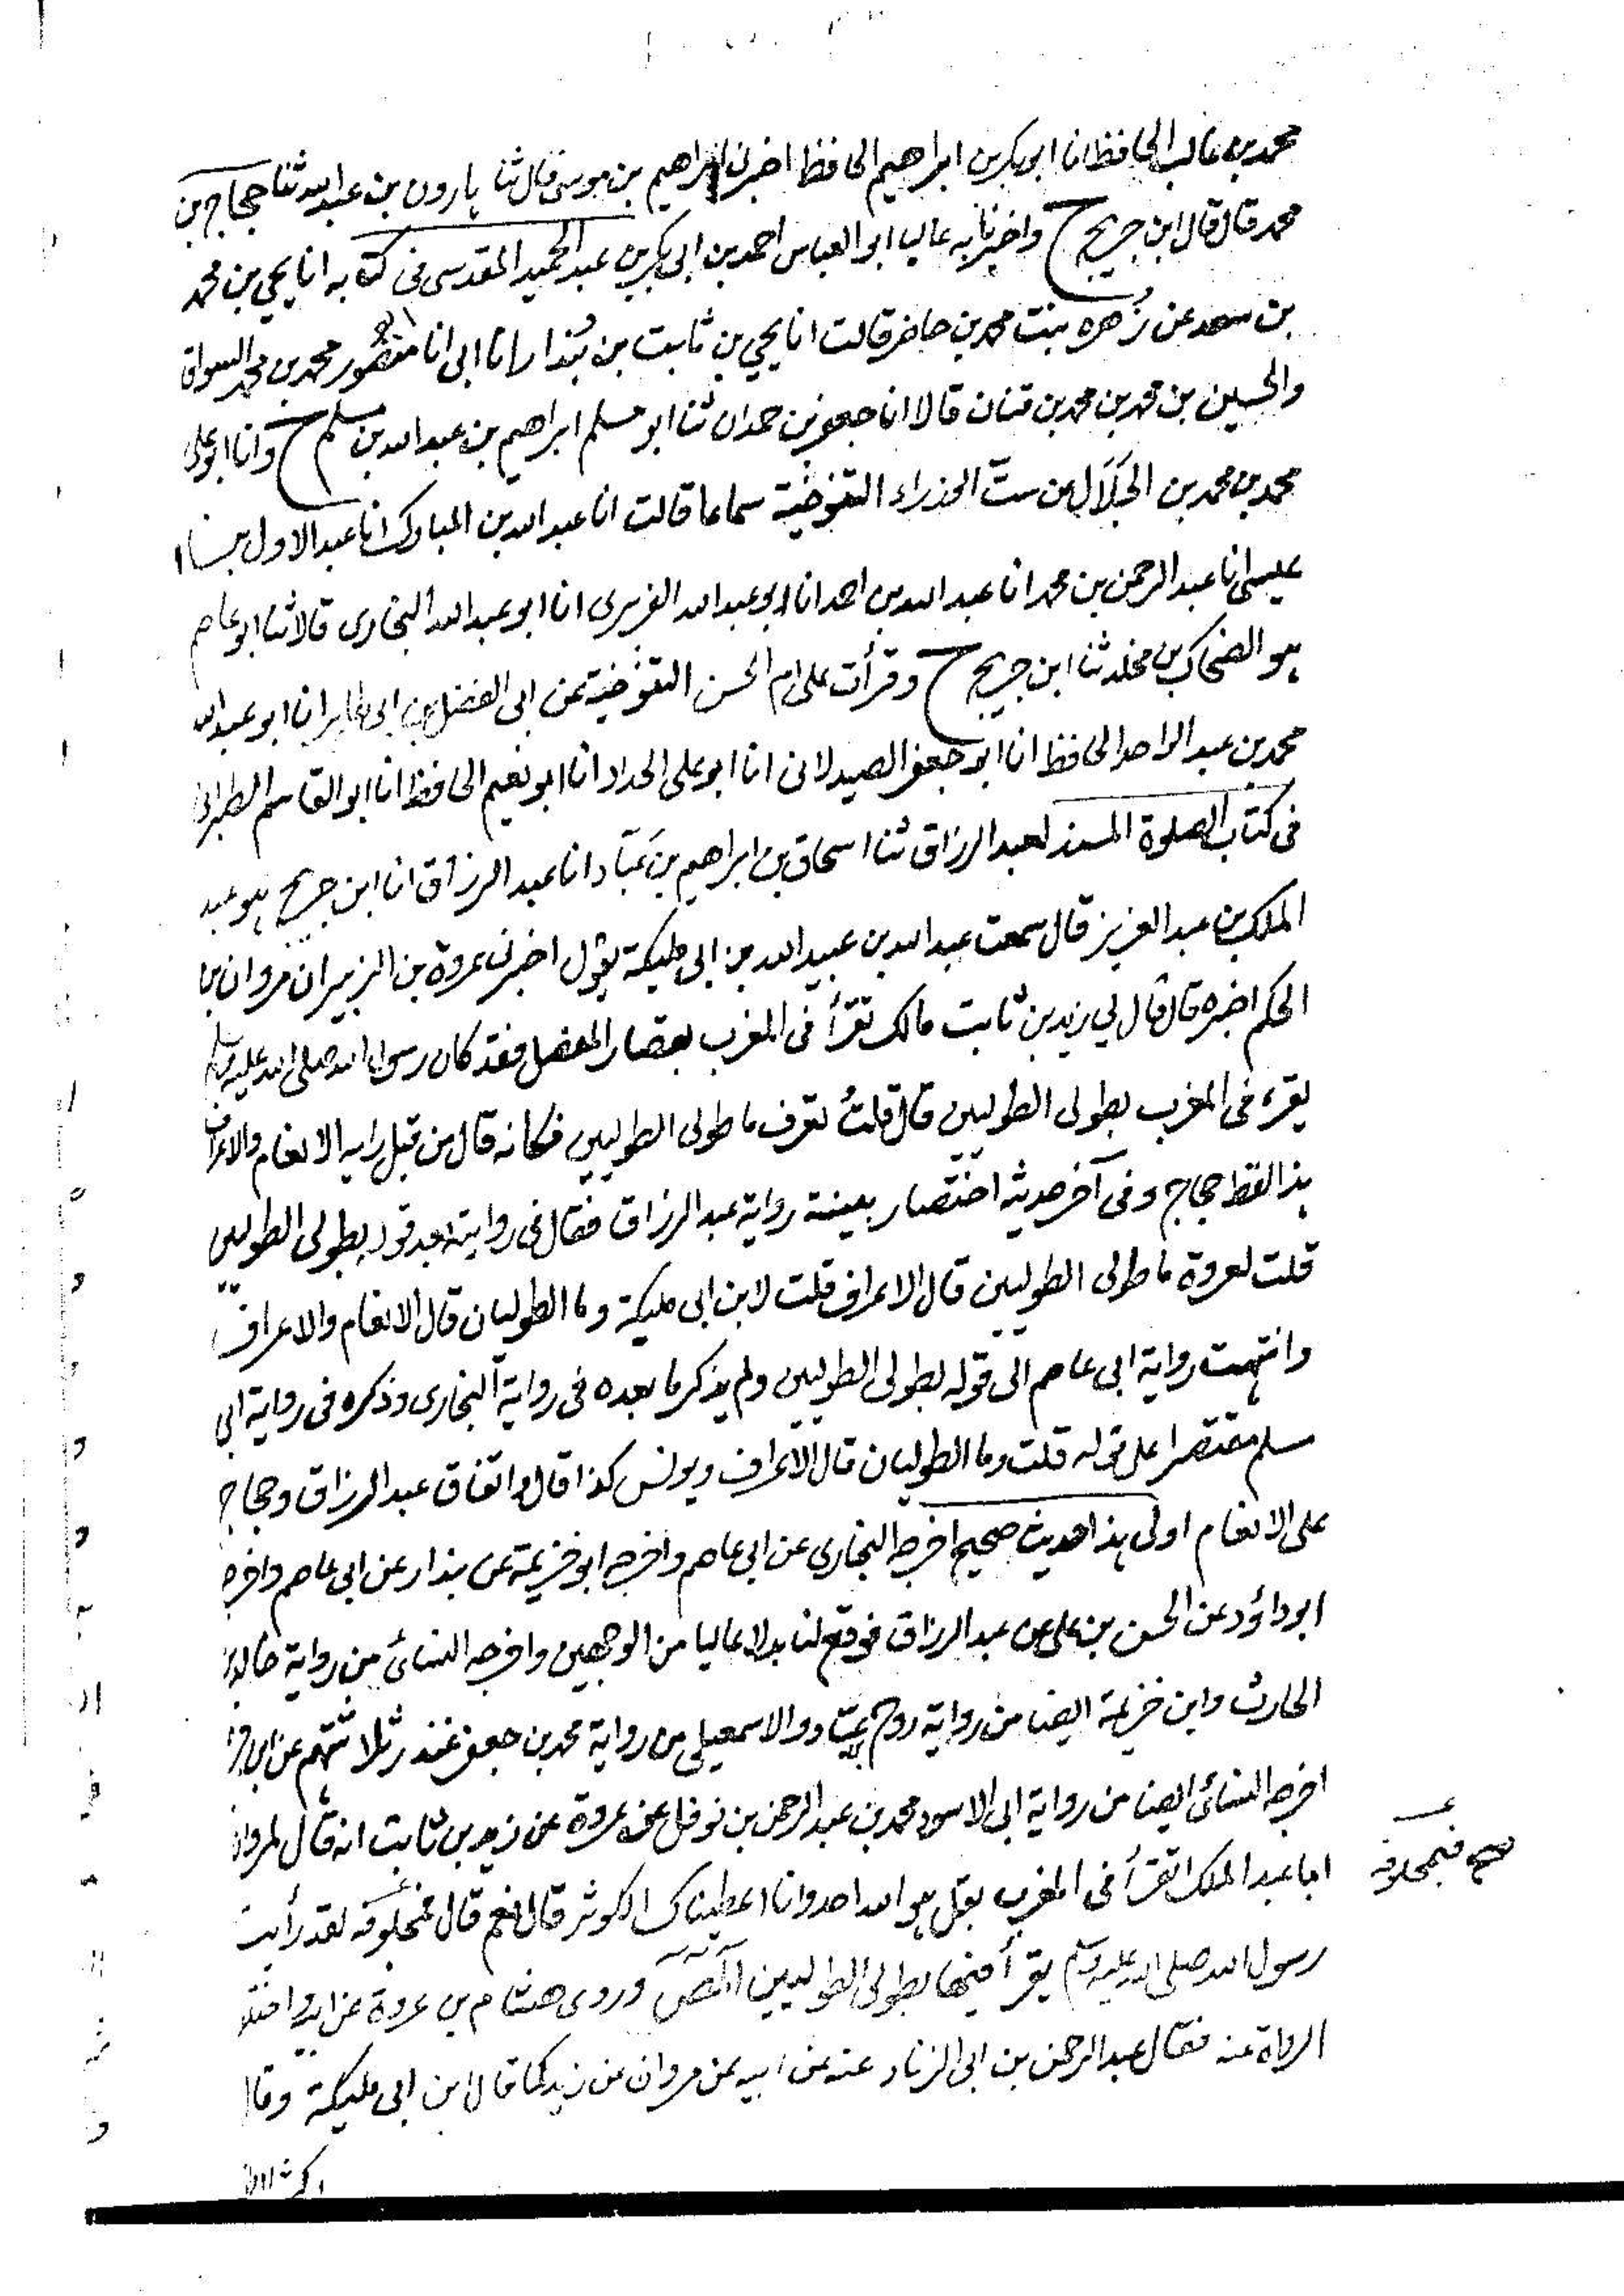 محمد بن غالب الحافظ انا ابو بكر بن ابراهيم الحافظ اخبرنى ابراهيم بن موسى قال ثنا هارون بن عبد الله ثنا حجاج بن
محمد قال قال ابن جريج ح واخبرنا به عاليا ابو العباس احمد بن ابى بكر بن عبد الحميد المقدسى فى كتابه انا يحيى بن محمد
بن سعد عن زُهره بنت محمد بن حاضر قالت انا يحيى بن ثابت بن بُندار انا ابى انا منصور محمد بن محمد السواق
والحسين بن محمد بن محمد بن قنان قالا انا جعفر بن حمدان ثنا ابو مسلم ابراهيم بن عبد الله بن مسلم ح وانا ابو على
محمد بن محمد بن الجَلَال عن ستّ الوزراء التنوخية سماعا قالت انا عبد الله بن المبارك انا عبد الاول بن
عيسى انا عبد الرحمن بن محمد انا عبد الله بن احمد انا ابو عبد الله الفربرى انا ابو عبد الله البخارى قالا ثنا ابو عاصم
هو الضحاك بن مخلد ثنا ابن جريج ح وقرأت على ام الحسن التنوخية عن ابى الفضل بن ابى طاهر انا ابو عبد الله
محمد بن عبد الواحد الحافظ انا ابو جعفر الصيدلانى انا ابو على الحداد انا ابو نعيم الحافظ انا ابو القاسم الطبرانى
فى كتاب الصلوة المسند لعبد الرزاق ثنا اسحاق بن ابراهيم بن عَبّاد انا عبد الرزاق انا ابن جريج هو عبد
الملك بن عبد العزيز قال سمعت عبد الله بن عبيد الله بن ابى مليكة يقول اخبرنى عروة بن الزبير ان مروان بن
الحكم اخبره قال قال لي زيد بن ثابت مالك تقرأ فى المغرب بقصار المفصل فقد كان رسول الله صلى الله عليه وسلم
يقرء فى المغرب بطولى الطوليين قال قلتُ لعرف ما طولى الطوليين فكانه قال من قبل رايه الانعام والاعراف
هذا لفظ حجاج وفى آخر حديثه اختصار بينته رواية عبد الرزاق فقال فى روايته بعد قوله بطولى الطوليين
قلت لعروة ما طولى الطوليين قال الاعراف قلت لابن ابى مليكة وما الطوليان قال الانعام والاعراف
وانتهت رواية ابى عاصم الى قوله بطولى الطوليين ولم يذكر ما بعده فى رواية البخارى وذكره فى رواية ابى
مسلم مقتصرا على قوله قلت وما الطوليان قال الاعراف ويونس كذا قال واتفاق عبد الرزاق وحجاج
على الانعام اولى هذا حديث صحيح اخرجه البخارى عن ابى عاصم واخرجه ابو خزيمة عن بندار عن ابى عاصم واخرجه
ابو داؤد عن الحسن بن على عن عبد الرزاق فوقع لنا بدلا عاليا من الوجهين واخرجه النسائى من رواية خالد بن
الحارث وابن خزيمة ايضا من رواية روح بن عبادة والاسمعيلى من رواية محمد بن جعفر غندر ثلاثتهم عن ابن جريج
اخرجه النسائى ايضا من رواية ابى الاسود محمد بن عبد الرحمن بن نوفل عن عروة عن زيد بن ثابت انه قال لمروان
ابا عبد الملك اتقرأ فى المغرب بقل هو الله احد وانا اعطيناك الكوثر قال نعم قال فمحلوفه لقد رأيت
صح فبمحلوفه
رسول الله صلى الله عليه وسلم يقرأ فيها بطولى الطوليين المص وروى هشام بن عروة عن ابيه واختلف
الرواة عنه فقال عبد الرحمن بن ابى الزناد عنه عن ابيه عن مروان عن زيد كما قال ابن ابى مليكة وقال